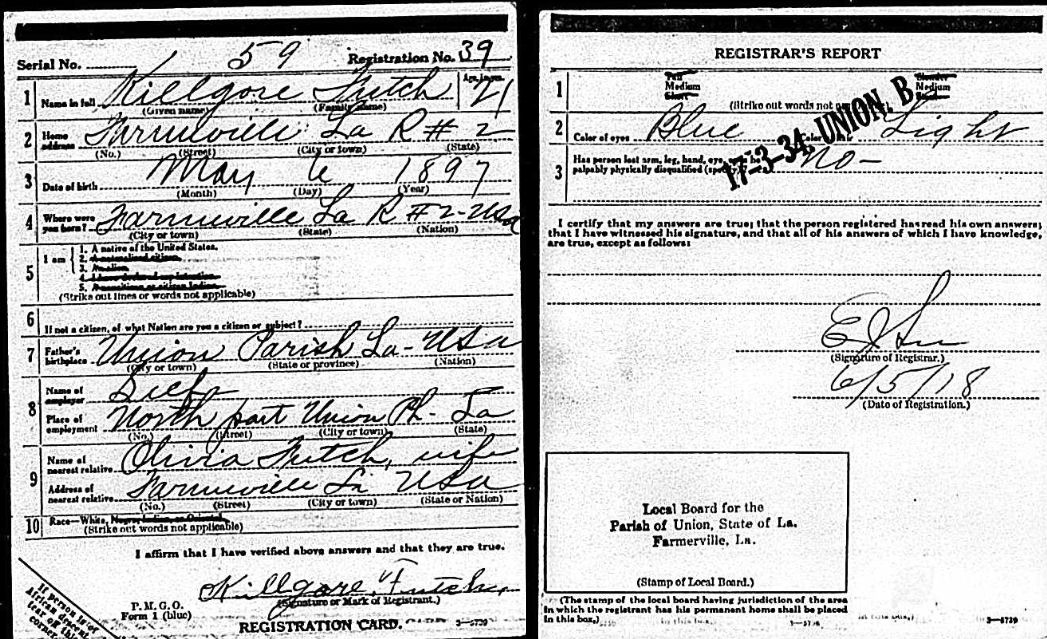 Serial No. 59 Registration No. 39
1 Name in full Killgore Futch Age, in yrs. 21
(Given name) (Family name)
2 Home address Farmerville La R#2
(No.) (Street) (City or town) (State)
3 Date of birth May 6 1897
(Month) (Day) (Year)
4 Where were you born? Farmerville La R#2-USA
(City or town) (State) (Nation)
5 I am
1. A native of the United States.
2. A naturalized citizen.
3. An alien.
4. I have declared my intention.
5. A noncitizen or citizen Indian.
(Strike out lines or words not applicable)
6 If not a citizen, of what Nation are you a citizen or subject?
7 Father's birthplace Union Parish La-USA
(City or town) (State or province) (Nation)
8 Name of employer Self
Place of employment North part Union Ph- La
(No.) (Street) (City or town) (State)
9 Name of nearest relative Olivia Futch, wife
Address of nearest relative Farmerville La USA
(No.) (Street) (City or town) (State or Nation)
10 Race—White, Negro, Indian, or Oriental
(Strike out words not applicable)
I affirm that I have verified above answers and that they are true.
Killgore Futch
(Signature or Mark of Registrant.)
P. M. G. O.
Form 1 (blue)
REGISTRATION CARD.
3—5739
If person is of
African descent
tear off this
corner
REGISTRAR'S REPORT
1 Tall Slender
Medium Medium
Short
(Strike out words not
17-3-34, UNION, B
2 Color of eyes Blue Light
3 Has person lost arm, leg, hand, eye,
palpably physically disqualified no-
I certify that my answers are true; that the person registered has read his own answers;
that I have witnessed his signature, and that all of his answers of which I have knowledge,
are true, except as follows:
(Signature of Registrar.)
6/5/18
(Date of Registration.)
Local Board for the
Parish of Union, State of La.
Farmerville, La.
(Stamp of Local Board.)
(The stamp of the local board having jurisdiction of the area
in which the registrant has his permanent home shall be placed
in this box.)
3—5739